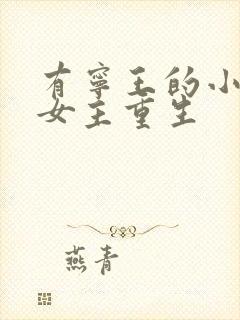 有寧王的小
女主重生
燕青